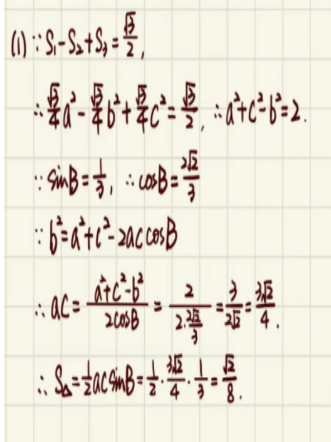 (1) ∵ S₁-S₂+S₃=√3/2,
∴ √3/4 a²-√3/4 b²+√3/4 c²=√3/2, ∴ a²+c²-b²=2.
∵ sinB=1/3, ∴ cosB=2√2/3
∵ b²=a²+c²-2accosB
∴ ac=(a²+c²-b²)/(2cosB)=2/(2·2√2/3)=3/(2√2)=3√2/4.
∴ S△=1/2 acsinB=1/2·3√2/4·1/3=√2/8.